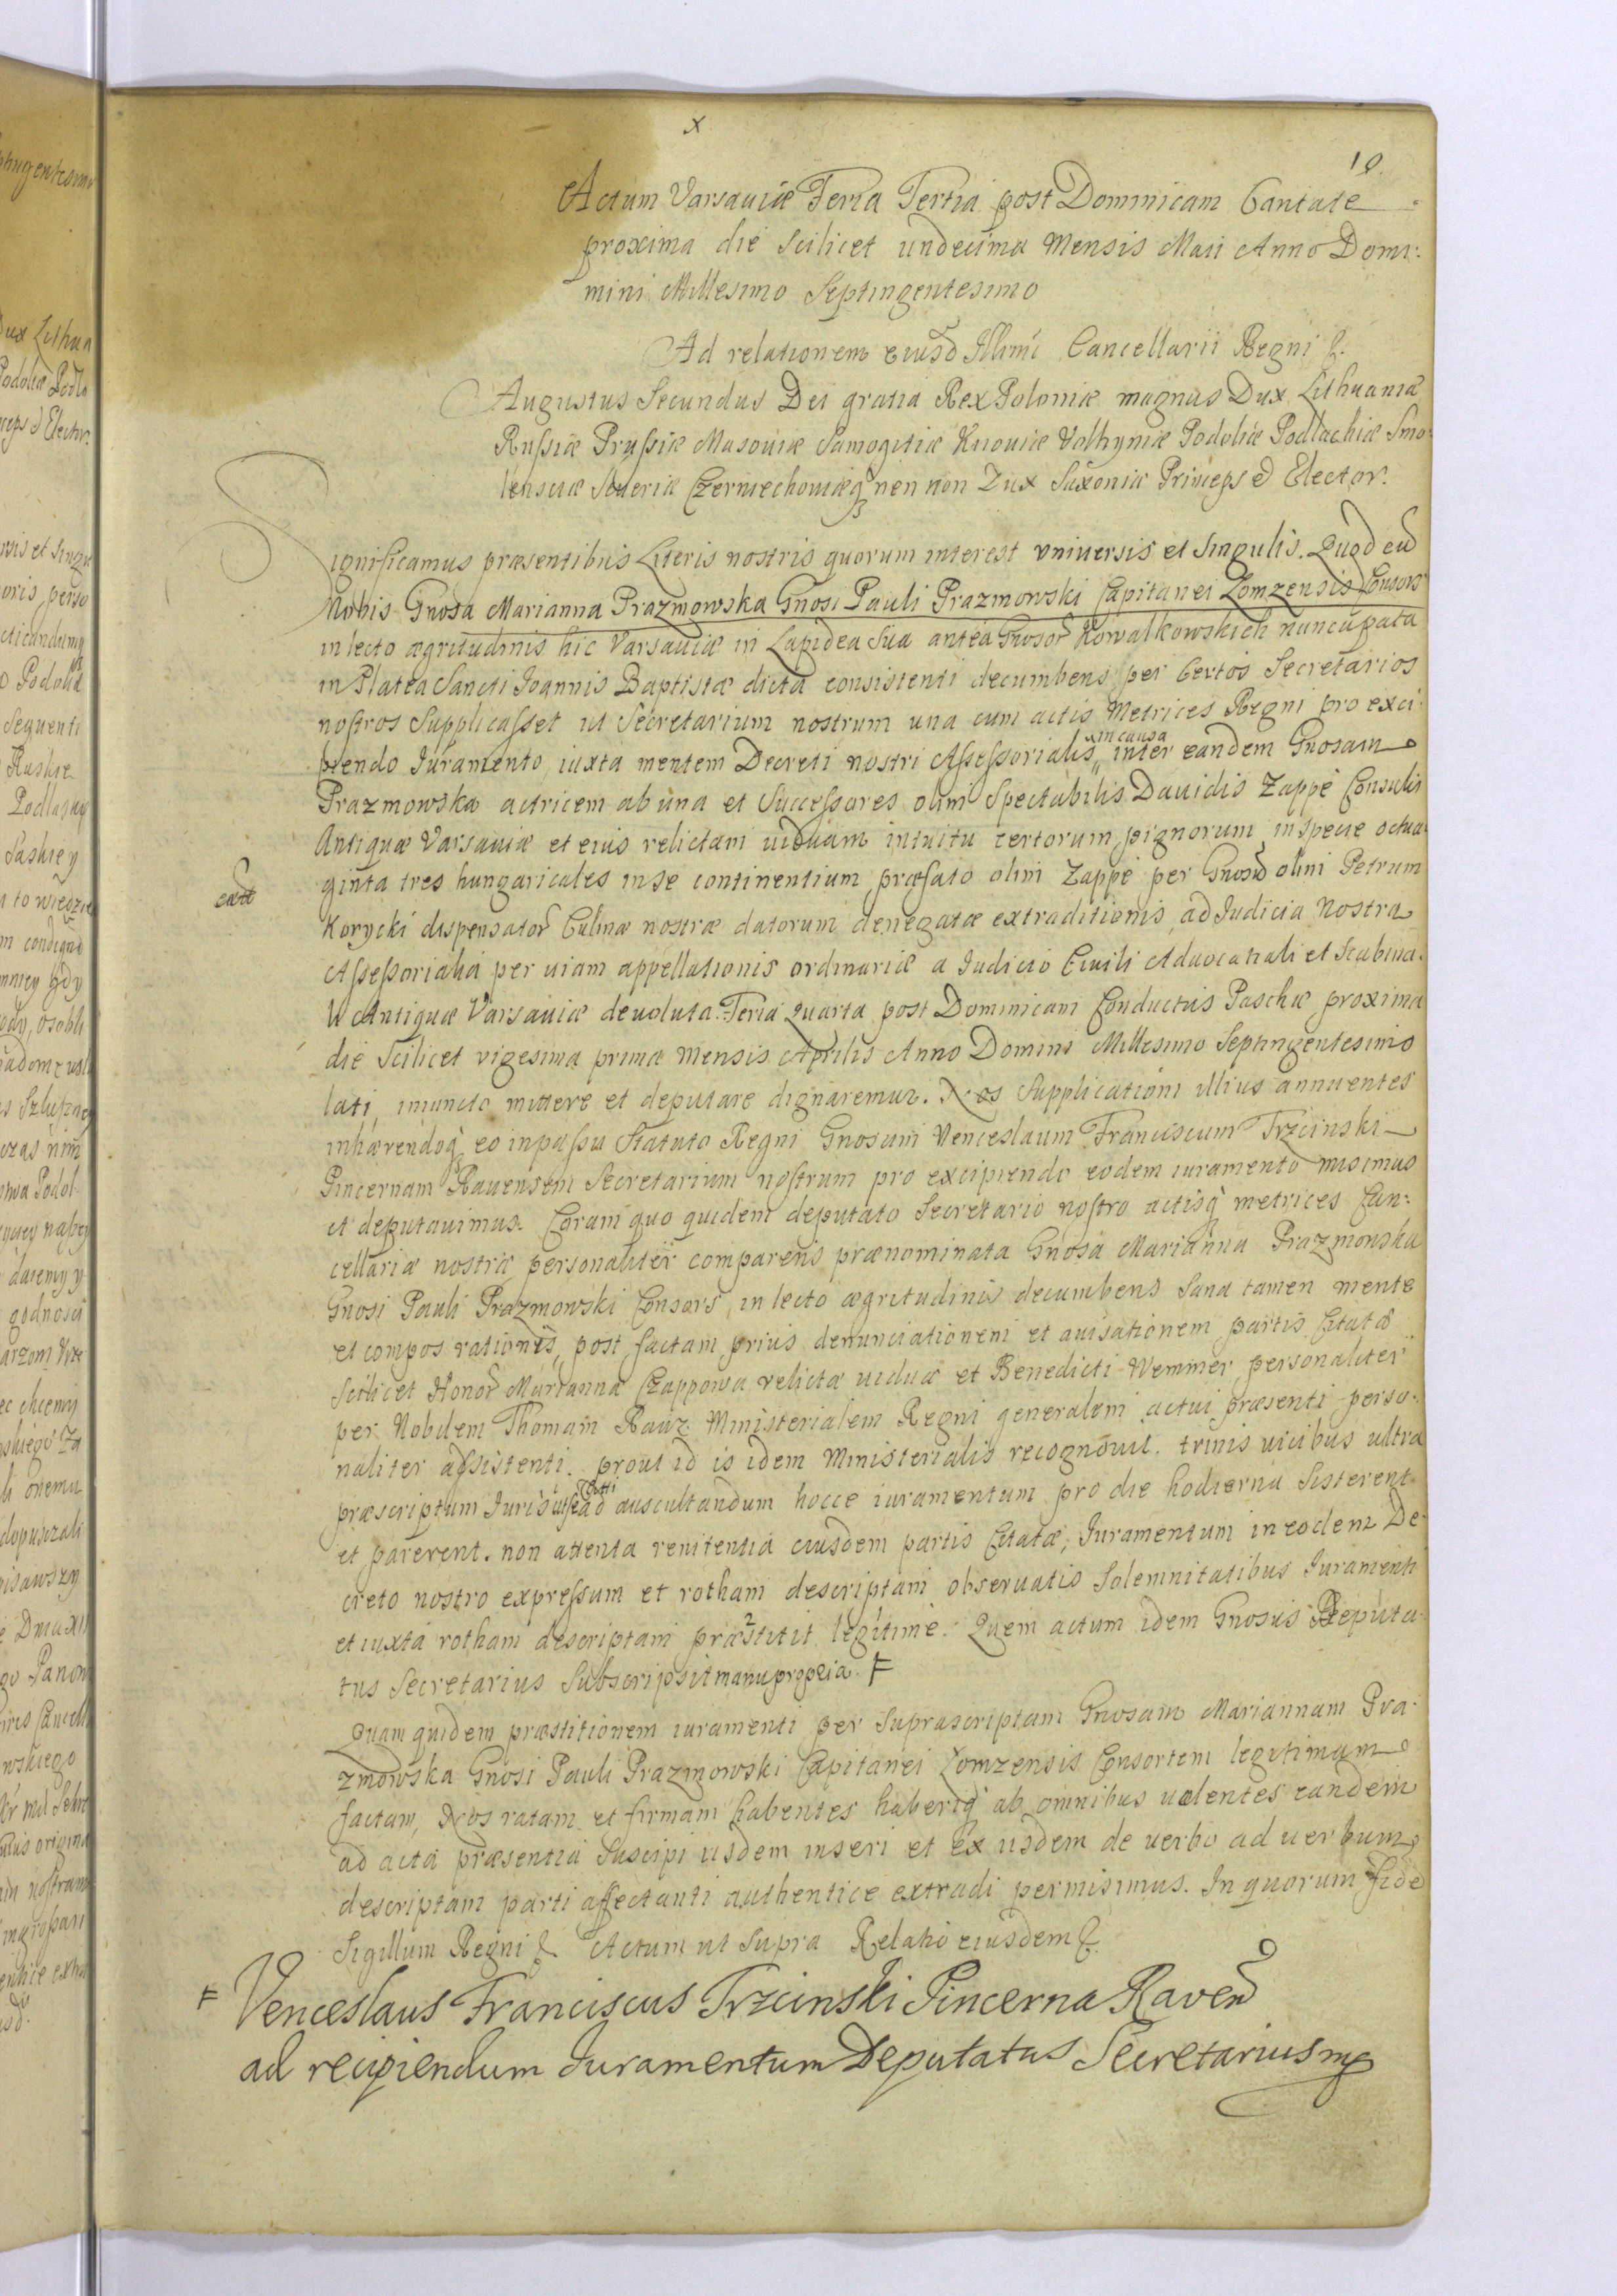 x
19.
Actum Varsaviæ Feria Tertia post Dominicam Cantate
proxima die scilicet undecima Mensis Maii Anno Domi:
mini Millesimo Septingentesimo
Ad relationem eiusd Illmi Cancellarii Regni &.
Augustus Secundus Dei gratia Rex Poloniæ magnus Dux Lithuaniæ
Russiæ Prussiæ Masoviæ Samogitiæ Kijouiæ Volhyniæ Podoliæ Podlachiæ Smo
lensciæ Seueriæ Czerniechouiæq nen non Dux Saxoniæ Princeps & Elector.
Significamus præsentibus Literis nostris quorum interest universis et singulis. Quod cu
Nobis Gnosa Marianna Prazmowska Gnosi Pauli Prazmowski Capitanei Lomzensis Consors
in lecto ægritudinis hic Varsaviæ in Lapidea sua antea Gnosor Kowalkowskich nuncupata
in Platea Sancti Joannis Baptistæ dicta consistenti decumbens per Certos Secretarios
nostros Supplicasset ut Secretarium nostrum una cum actis Metrices Regni pro exci
piendo Juramento, iuxta mentem Decreti nostri Assessorialis in causa inter eandem Gnosam
Prazmowska actricem ab una et Successores olim Spectabilis Dauidis Zappe Consulis
Antiquæ Varsaviæ et eius relictam uiduam intuitu certorum pignorum in specie octua
ginta tres hungaricales in se continentium præfato olim Zappe per Gnosu olim Petrum
extt
Korycki dispensator Culinæ nostræ datorum denegatæ extraditionis, ad Judicia Nostra
Assessorialia per uiam appellationis ordinariæ a Judicio Ciuili Aduocatiali et Scabina
li Antiquæ Varsaviæ deuoluta. Feria Quarta post Dominicam Conductus Paschæ proxima
die scilicet vigesima prima mensis Aprilis Anno Domini Millesimo Septingentesimo
lati iniuncto mittere et deputare dignaremur. Nos Supplicationi illius annuentes
inhærendoq eo in passu Statuto Regni Gnosum Venceslaum Franciscum Trzcinski
Pincernam Rauensem Secretarium nostrum pro excipiendo eodem iuramento misimus
et deputauimus. Coram quo quidem deputato Secretario nostro actisq metrices Can:
cellariæ nostræ personaliter comparens prænominata Gnosa Marianna Prazmowska
Gnosi Pauli Prazmowski Consors, in lecto ægritudinis decumbens sana tamen mente
et compos rationis, post factam prius denunciationem et auisationem partis Citatæ
scilicet Honor Marianna Czappowa relictæ uiduæ et Benedicti Wemmer personaliter
per Nobilem Thomam Rauz Ministerialem Regni generalem actui præsenti perso:
naliter assistenti. prout id is idem Ministerialis recognouit. trinis uicibus ultra
præscriptum Juris ut se ad auscultandum hocce iuramentum pro die hodierna sisterent
et parerent. non attenta renitentia eiusdem partis Citatæ, Juramentum in eodem De
creto nostro expressum et rotham descriptam obseruatis Solemnitatibus Juramenti
et iuxta rotham descriptam præstitit legitime. Quem actum idem Gnosus Deputa
tus Secretarius Subscripsit manu propria. F
Quam quidem præstitionem iuramenti per Suprascriptam Gnosam Mariannam Pra
zmowska Gnosi Pauli Prazmowski Capitanei Lomzensis Consortem legitimam
factam, Nos ratam et firmam habentes haberiq ab omnibus uolentes eandem
ad acta præsentia Suscipi iisdem inseri et ex iisdem de uerbo ad uerbum
descriptam parti affectanti authentice extradi permisimus. In quorum fide
Sigillum Regni & Actum ut supra Relatio eiusdem &.
F Venceslaus Franciscus Trzcinski Pincerna Raven
ad recipiendum Juramentum Deputatus Secretarius mp